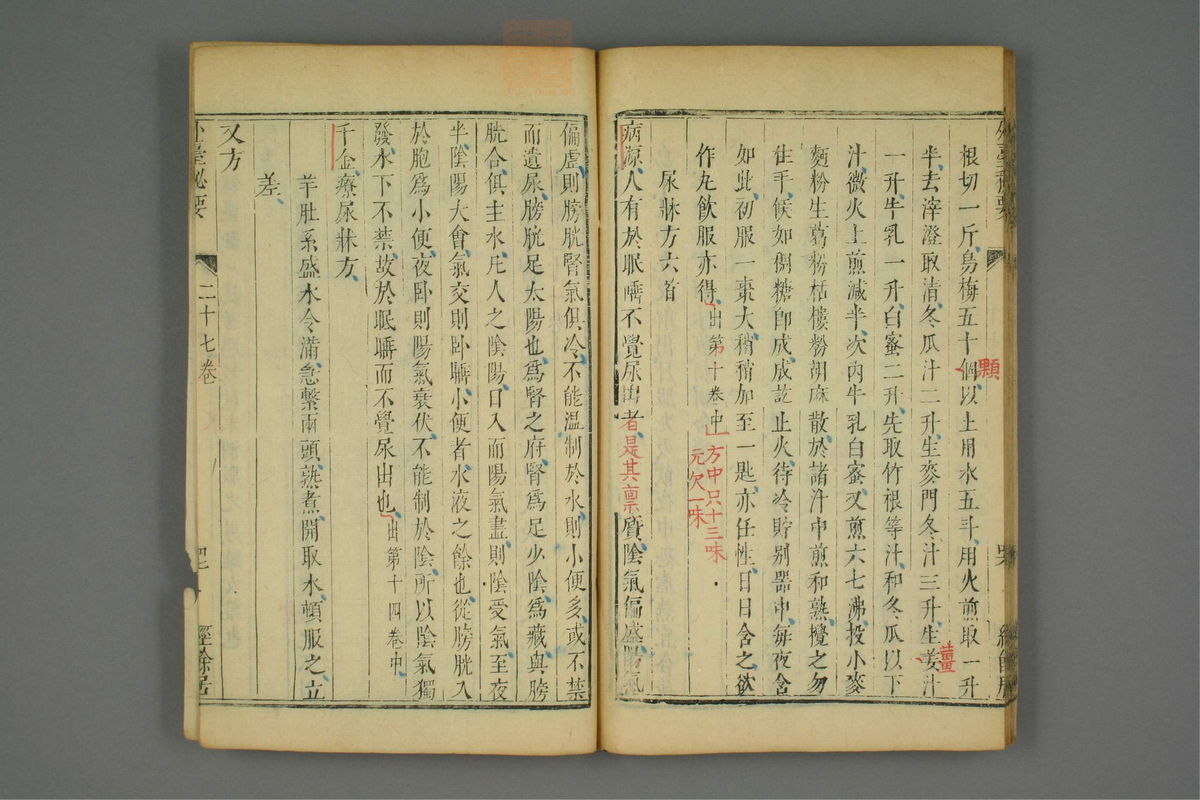 根切一斤烏梅五十個以上用水五斗用火煎取一升
顆
半去滓澄取清冬瓜汁二升生麥門冬汁三升生姜汁
薑
一升牛乳一升白蜜二升先取竹根等汁和冬瓜以下
汁微火上煎減半次內牛乳白蜜又煎六七沸投小麥
麵粉生葛粉栝樓粉胡麻散於諸汁中煎和熟攪之勿
住手候如稠糖卽成成訖止火待冷貯別器中每夜含
如此初服一棗大稍稍加至一匙亦任性日日含之欲
作丸飲服亦得出第十卷中
一方中只十三味
元欠一味
尿牀方六首
病源人有於眠睡不覺尿出者是其稟質陰氣偏盛陽氣
偏虛則膀胱腎氣俱冷不能溫制於水則小便多或不禁
而遺尿膀胱足太陽也爲腎之府腎爲足少陰爲藏與膀
胱合俱主水凡人之陰陽日入而陽氣盡則陰受氣至夜
半陰陽大會氣交則卧睡小便者水液之餘也從膀胱入
於胞爲小便夜卧則陽氣衰伏不能制於陰所以陰氣獨
發水下不禁故於眠睡而不覺尿出也出第十四卷中
千金療尿牀方
羊肚系盛水令滿急繫兩頭熟煮開取水頓服之立
差
又方
外臺秘要 二十七卷 經餘居